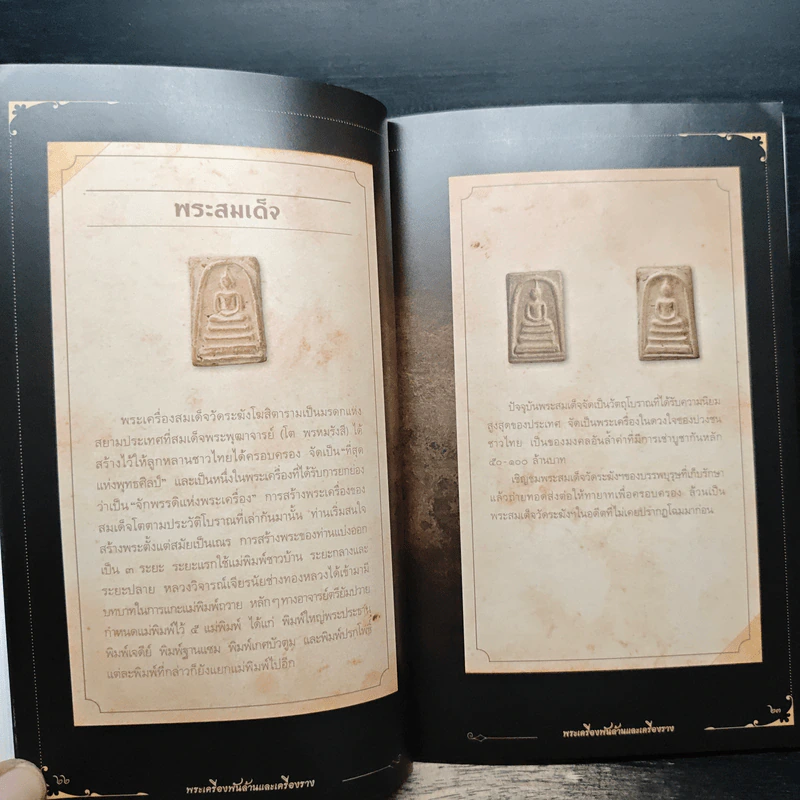 พระสมเด็จ
พระเครื่องสมเด็จวัดระฆังโฆสิตารามเป็นมรดกแห่ง
สยามประเทศที่สมเด็จพระพุฒาจารย์ (โต พรหมรังสี) ได้
สร้างไว้ให้ลูกหลานชาวไทยได้ครอบครอง จัดเป็น “ที่สุด
แห่งพุทธศิลป์” และเป็นหนึ่งในพระเครื่องที่ได้รับการยกย่อง
ว่าเป็น “จักพรรดิแห่งพระเครื่อง” การสร้างพระเครื่องของ
สมเด็จโตตามประวัติโบราณที่เล่ากันมานั้น ท่านเริ่มสนใจ
สร้างพระตั้งแต่สมัยเป็นเณร การสร้างพระของท่านแบ่งออก
เป็น ๓ ระยะ ระยะแรกใช้แม่พิมพ์ชาวบ้าน ระยะกลางและ
ระยะปลาย หลวงวิจารณ์เจียรนัยช่างทองหลวงได้เข้ามามี
บทบาทในการแกะแม่พิมพ์ถวาย หลักๆทางอาจารย์ตรียัมปวาย
กำหนดแม่พิมพ์ไว้ ๕ แม่พิมพ์ ได้แก่ พิมพ์ใหญ่พระประธาน
พิมพ์เจดีย์ พิมพ์ฐานแซม พิมพ์เกศบัวตูม และพิมพ์ปรกโพธิ์
แต่ละพิมพ์ที่กล่าวก็ยังแยกแม่พิมพ์ไปอีก
๒๒
พระเครื่องพันล้านและเครื่องราง
ปัจจุบันพระสมเด็จจัดเป็นวัตถุโบราณที่ได้รับความนิยม
สูงสุดของประเทศ จัดเป็นพระเครื่องในดวงใจของปวงชน
ชาวไทย เป็นของมงคลอันล้ำค่าที่มีการเช่าบูชากันหลัก
๕๐-๑๐๐ ล้านบาท
เชิญชมพระสมเด็จวัดระฆังฯของบรรพบุรุษที่เก็บรักษา
แล้วถ่ายทอดส่งต่อให้ทายาทเพื่อครอบครอง ล้วนเป็น
พระสมเด็จวัดระฆังฯในอดีตที่ไม่เคยปรากฏโฉมมาก่อน
พระเครื่องพันล้านและเครื่องราง
๒๓